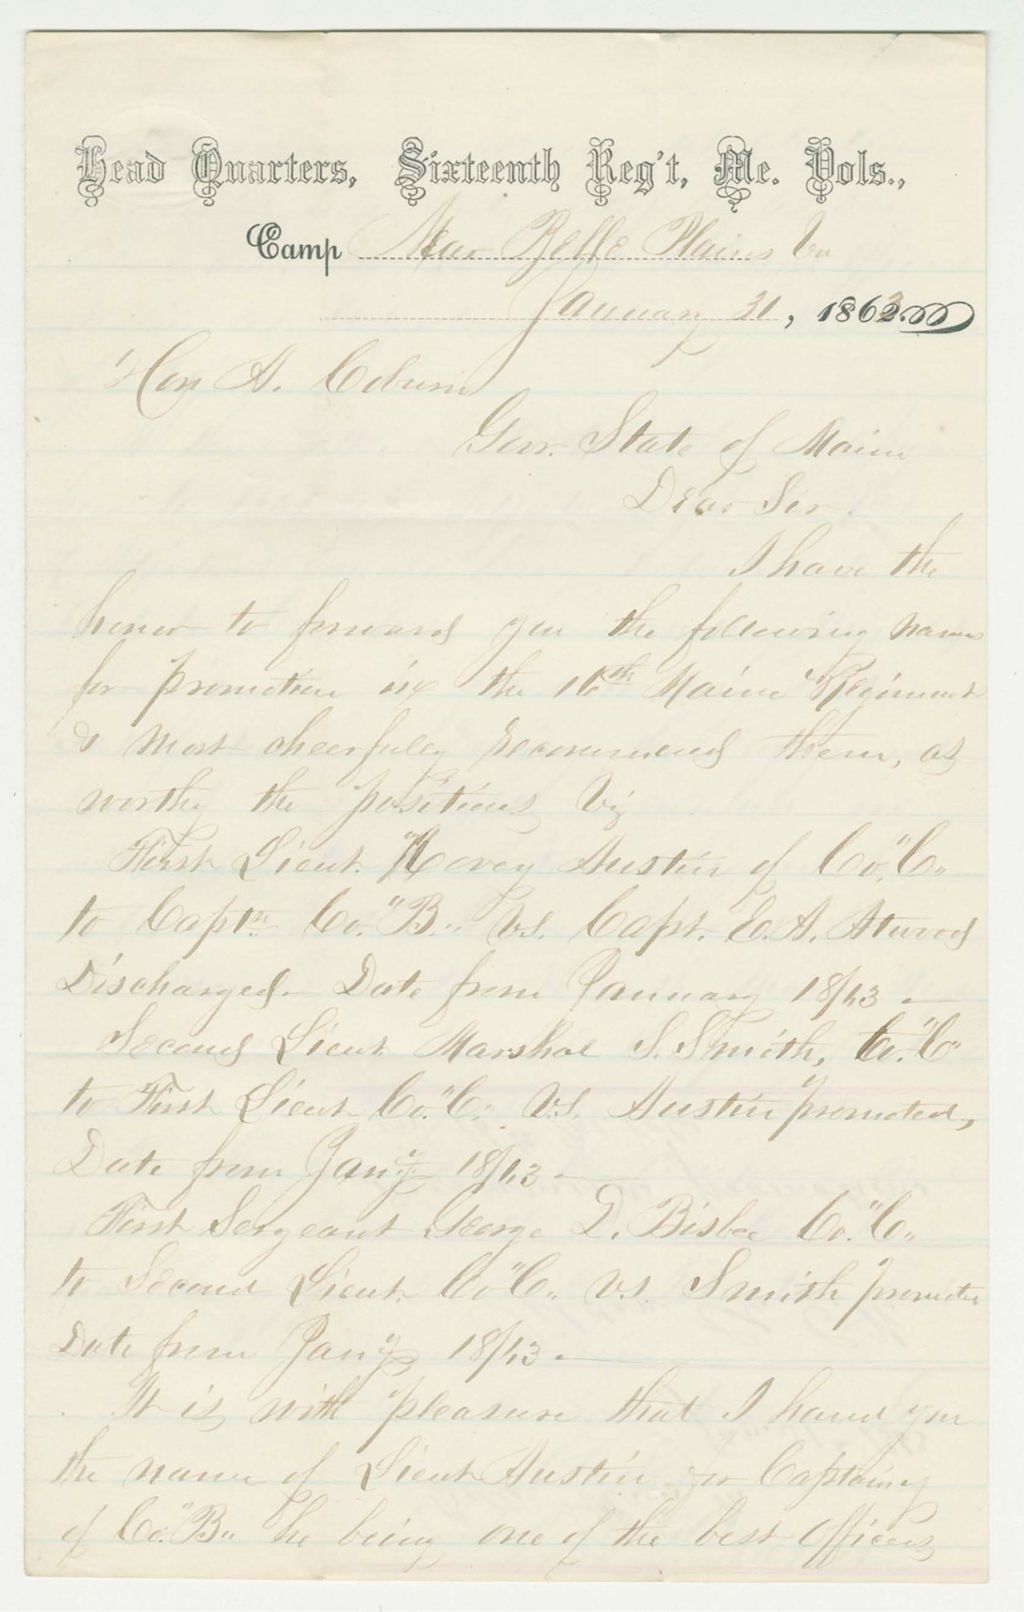 Head Quarters, Sixteenth Reg't, Me. Vols.,
Camp Near Belle Plains Va
January 31, 1863
Hon A. Coburn
Gov. State of Maine
Dear Sir.
I have the
honor to forward you the following names
for promotion in the 16th Maine Regiment
& most cheerfully recommend them, as
worthy the positions Viz
First Lieut. Hovey Austin of Co. "C"
to Captn Co. "B" vs. Capt. E. A. Atwood
Discharged. Date from January 18/63 —
Second Lieut Marshal S. Smith, Co. "C"
to First Lieut Co. "C" vs. Austin promoted,
Date from Jany 18/63 —
First Sergeant George D. Bisbee Co. "C"
to Second Lieut. Co "C" vs. Smith promoted
Date from Jany 18/63 —
It is with pleasure that I hand you
the name of Lieut Austin for Captaincy
of Co. "B" he being one of the best Officers